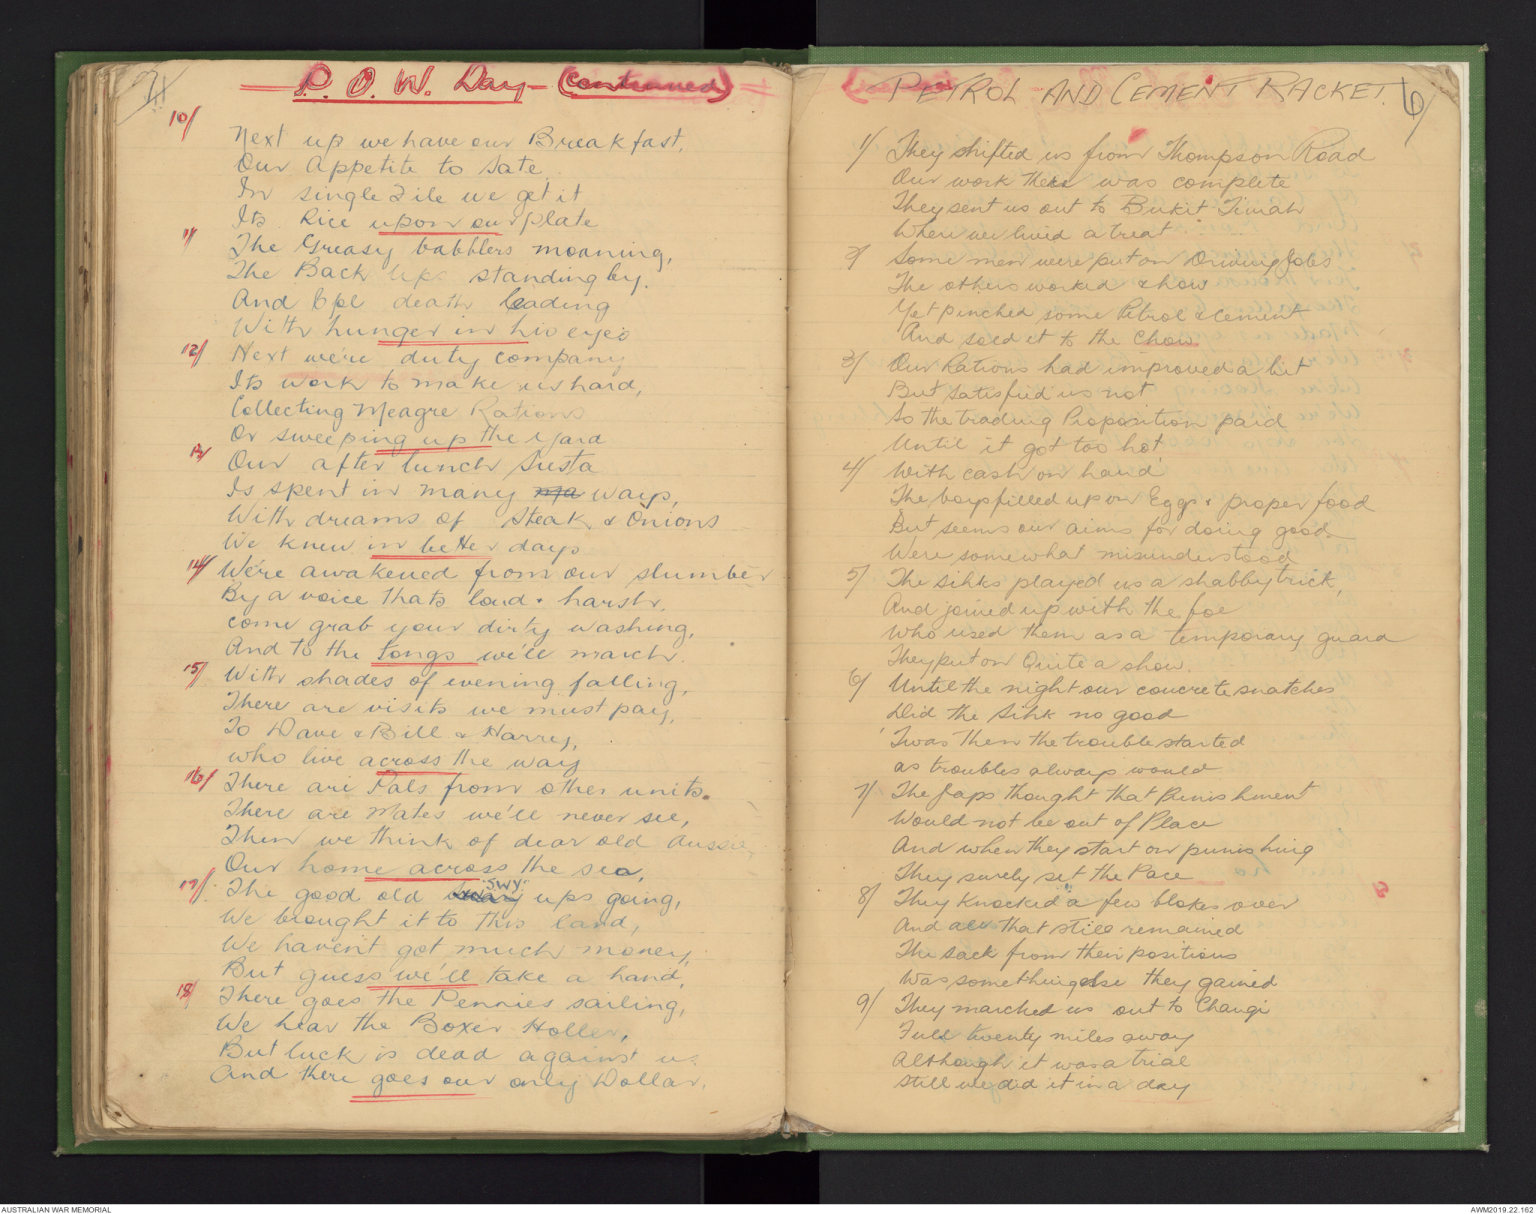 71
P. O. W. Day - (continued)
10/
Next up we have our Breakfast,
Our appetite to sate.
In single File we get it
Its Rice upon our plate
11/
The Greasy babblers moaning,
The Back Up standing by.
And Cpl death leading
With hunger in his eyes
12/
Next we're duty company
Its work to make us hard,
Collecting Meagre Rations
Or sweeping up the yard
13/
Our after lunch Siesta
Is spent in many ma ways,
With dreams of Steak & Onions
We knew in better days
14/
We're awakened from our slumber
By a voice thats loud & harsh,
come grab your dirty washing,
And to the tongs we'll march.
15/
With shades of evening falling,
There are visits we must pay,
To Dave & Bill & Harry,
who live across the way
16/
There are Pals from other units.
There are Mates we'll never see,
Then we think of dear old Aussie,
Our home across the sea,
17/
The good old SWY ups going,
We brought it to this land,
We haven't got much money,
But guess we'll take a hand,
18/
There goes the Pennies sailing,
We hear the Boxer Holler,
But luck is dead against us
And there goes our only Dollar.
PETROL AND CEMENT RACKET.
6/
1/ They shifted us from Thompson Road
Our work there was complete
They sent us out to Bukit Timah
Where we lived a treat
2/ Some men were put on Driving Jobs
The others worked & how
Yet pinched some Petrol & cement
And sold it to the Chow
3/ Our Rations had improved a bit
But satisfied us not
So the trading Proposition paid
Until it got too hot
4/ With cash on hand
The boys filled up on Eggs & proper food
But seems our aims for doing good
Were somewhat misunderstood
5/ The Sihks played us a shabby trick,
And joined up with the foe
Who used them as a temporary guard
They put on Quite a show.
6/ Until the night our concrete snatches
Did the Sihk no good
'Twas Then the trouble started
as troubles always would
7/ The Japs thought that Punishment
Would not be out of Place
And when they start on punishing
They surely set the Pace
8/ They knocked a few blokes over
And all that still remained
The sack from their positions
Was something else they gained
9/ They marched us out to Changi
Full twenty miles away
Although it was a trial
Still we did it in a day
AUSTRALIAN WAR MEMORIAL
AWM2019.22.162